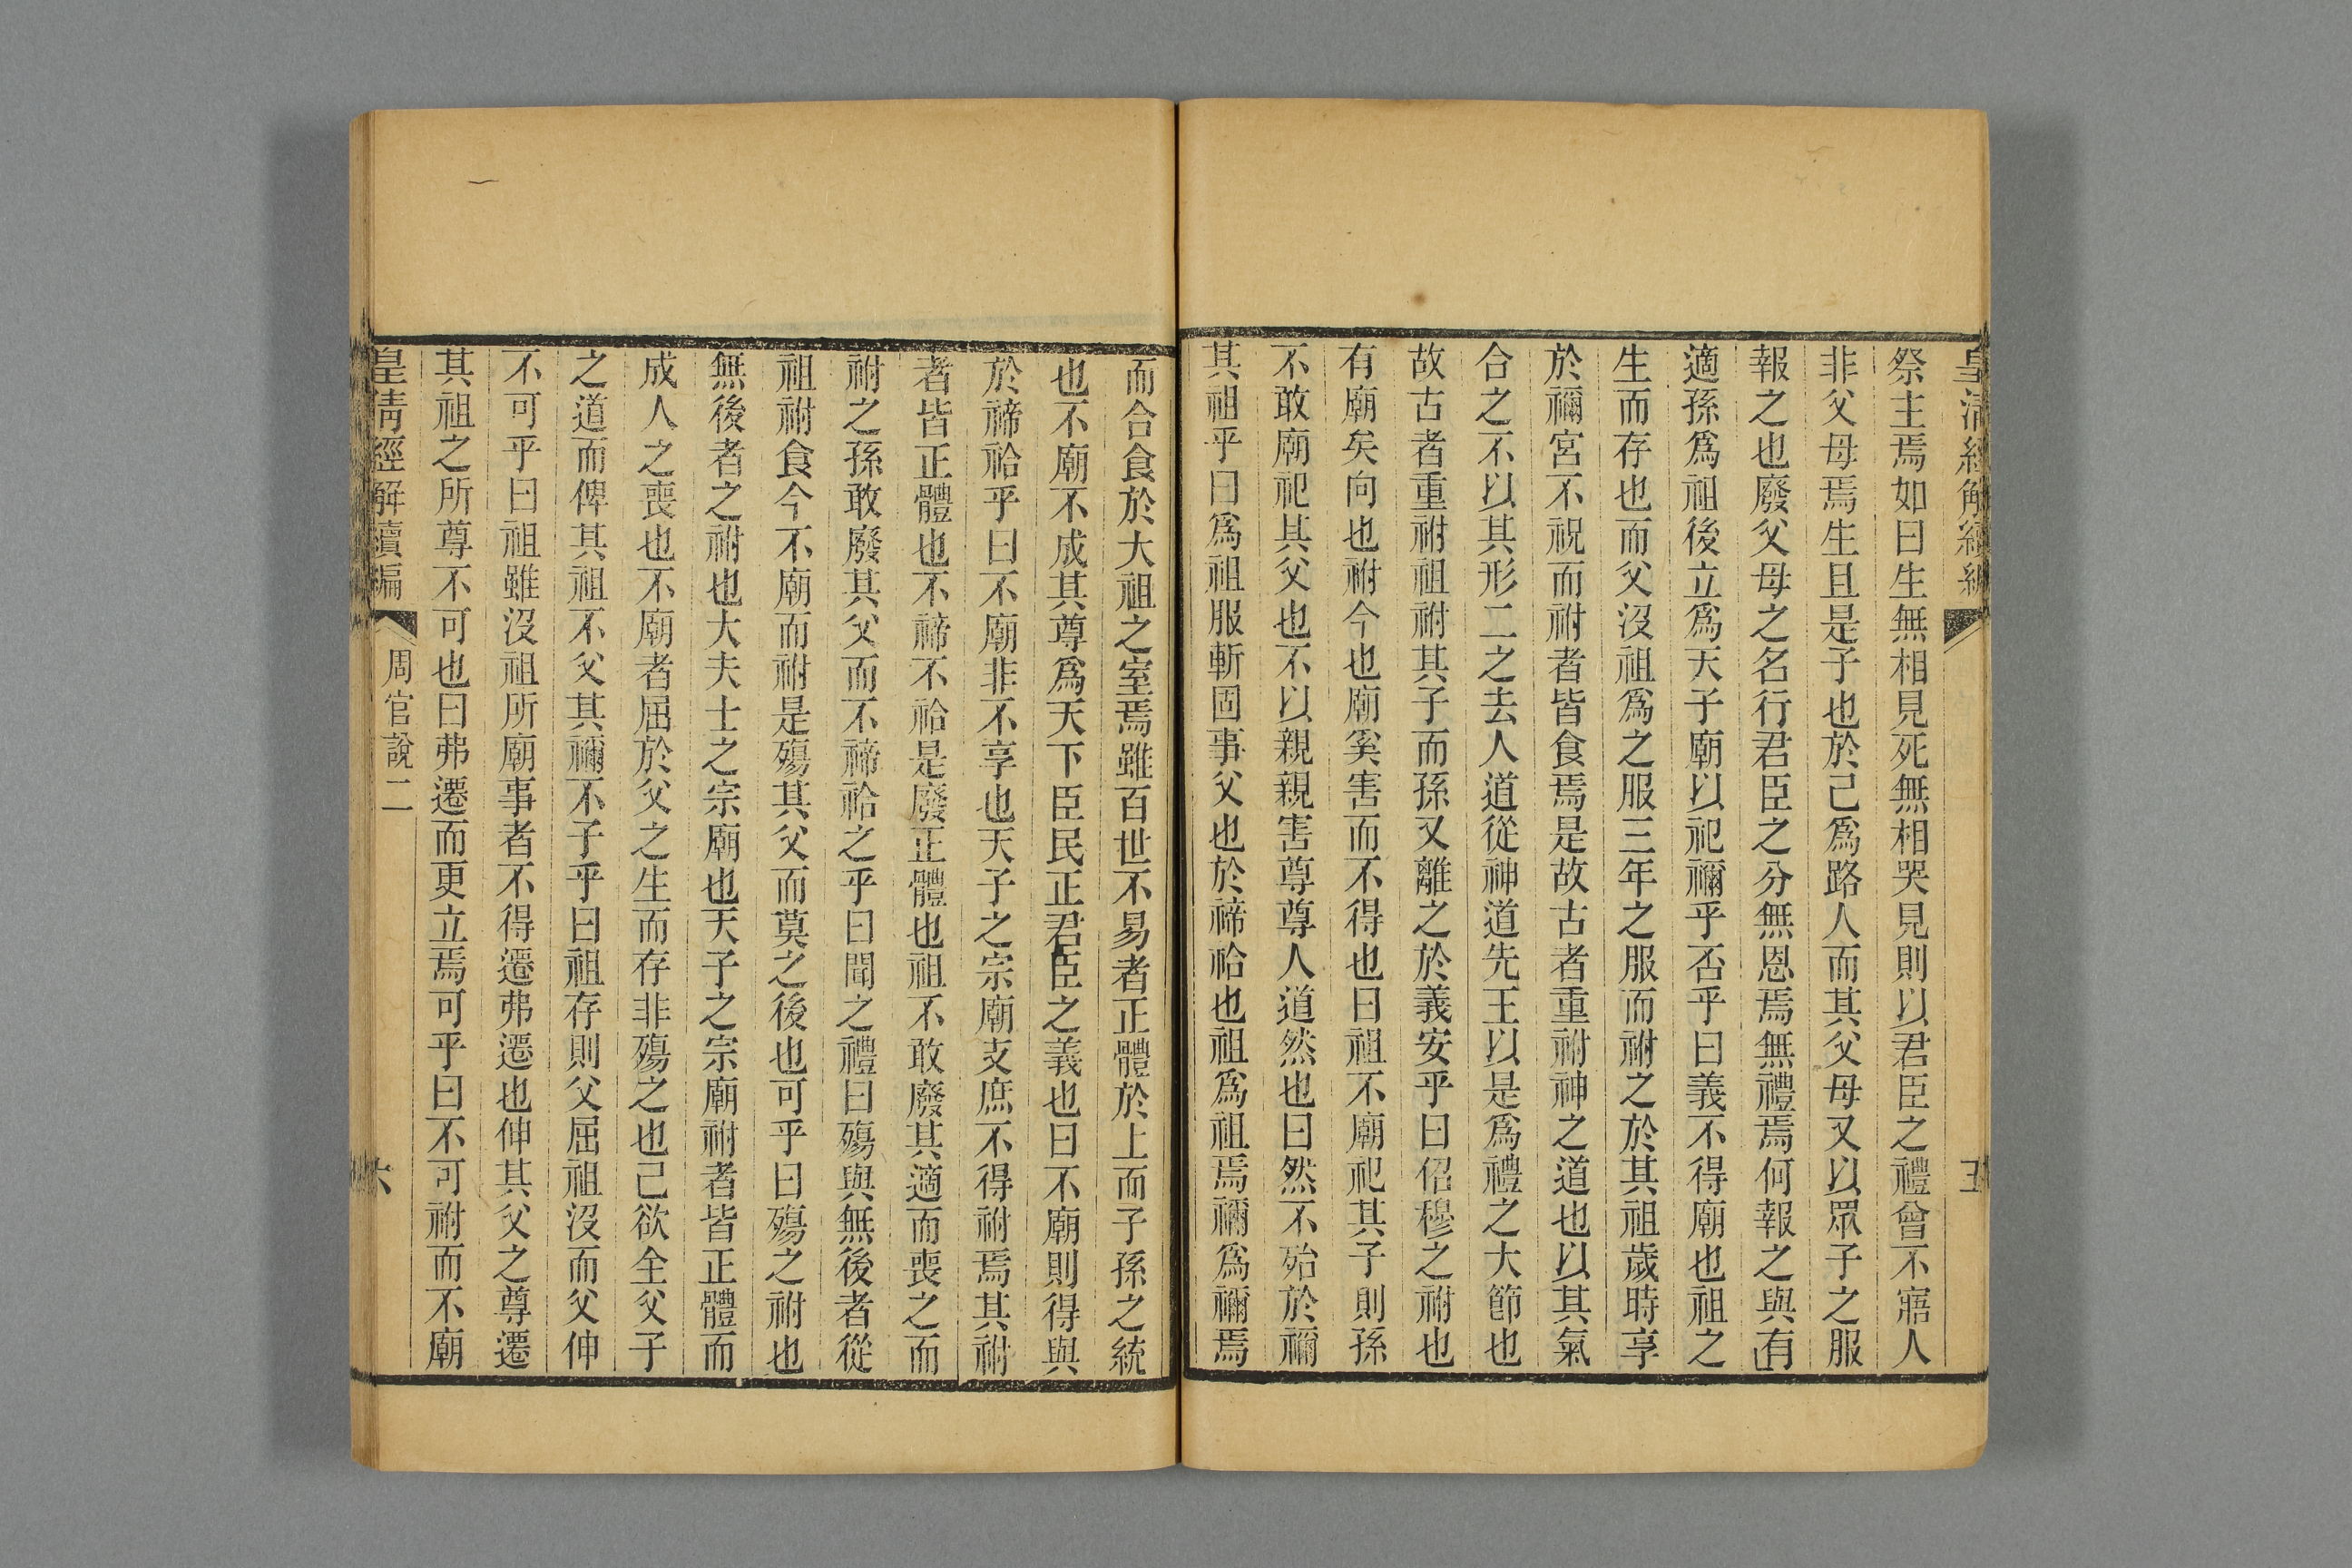 皇清經解續編
五
祭主焉如曰生無相見死無相哭見則以君臣之禮曾不寤人
非父母焉生且是子也於己爲路人而其父母又以眾子之服
報之也廢父母之名行君臣之分無恩焉無禮焉何報之與有
適孫爲祖後立爲天子廟以祀禰乎否乎曰義不得廟也祖之
生而存也而父沒祖爲之服三年之服而祔之於其祖歲時享
於禰宮不祝而祔者皆食焉是故古者重祔神之道也以其氣
合之不以其形二之去人道從神道先王以是爲禮之大節也
故古者重祔祖祔其子而孫又離之於義安乎曰佋穆之祔也
有廟矣向也祔今也廟奚害而不得也曰祖不廟祀其子則孫
不敢廟祀其父也不以親親害尊尊人道然也曰然不殆於禰
其祖乎曰爲祖服斬固事父也於禘祫也祖爲祖焉禰爲禰焉
而合食於大祖之室焉雖百世不易者正體於上而子孫之統
也不廟不成其尊爲天下臣民正君臣之義也曰不廟則得與
於禘祫乎曰不廟非不享也天子之宗廟支庶不得祔焉其祔
者皆正體也不禘不祫是廢正體也祖不敢廢其適而喪之而
祔之孫敢廢其父而不禘祫之乎曰聞之禮曰殤與無後者從
祖祔食今不廟而祔是殤其父而莫之後也可乎曰殤之祔也
無後者之祔也大夫士之宗廟也天子之宗廟祔者皆正體而
成人之喪也不廟者屈於父之生而存非殤之也己欲全父子
之道而俾其祖不父其禰不子乎曰祖存則父屈祖沒而父伸
不可乎曰祖雖沒祖所廟事者不得遷弗遷也伸其父之尊遷
其祖之所尊不可也曰弗遷而更立焉可乎曰不可祔而不廟
皇清經解續編
周官說二
六